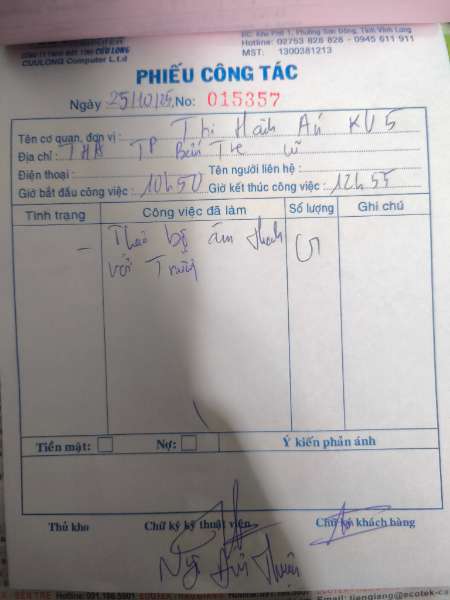 CUULONG Computer L.t.d
ĐC: Khu Phố 1, Phường Sơn Đông, Tỉnh Vĩnh Long
Hotline: 02753 828 828 - 0945 611 911
MST: 1300381213
PHIẾU CÔNG TÁC
Ngày 25/10/25 No: 015357
Tên cơ quan, đơn vị: Thi Hành Án KV5
Địa chỉ: THA TP Bến Tre cũ
Điện thoại: Tên người liên hệ:
Giờ bắt đầu công việc: 10h50 Giờ kết thúc công việc: 12h55
Tình trạng Công việc đã làm Số lượng Ghi chú
- Tháo bộ âm thanh
với
Tiền mặt: Nợ: Ý kiến phản ánh
Thủ kho Chữ ký kỹ thuật viên Chữ ký khách hàng